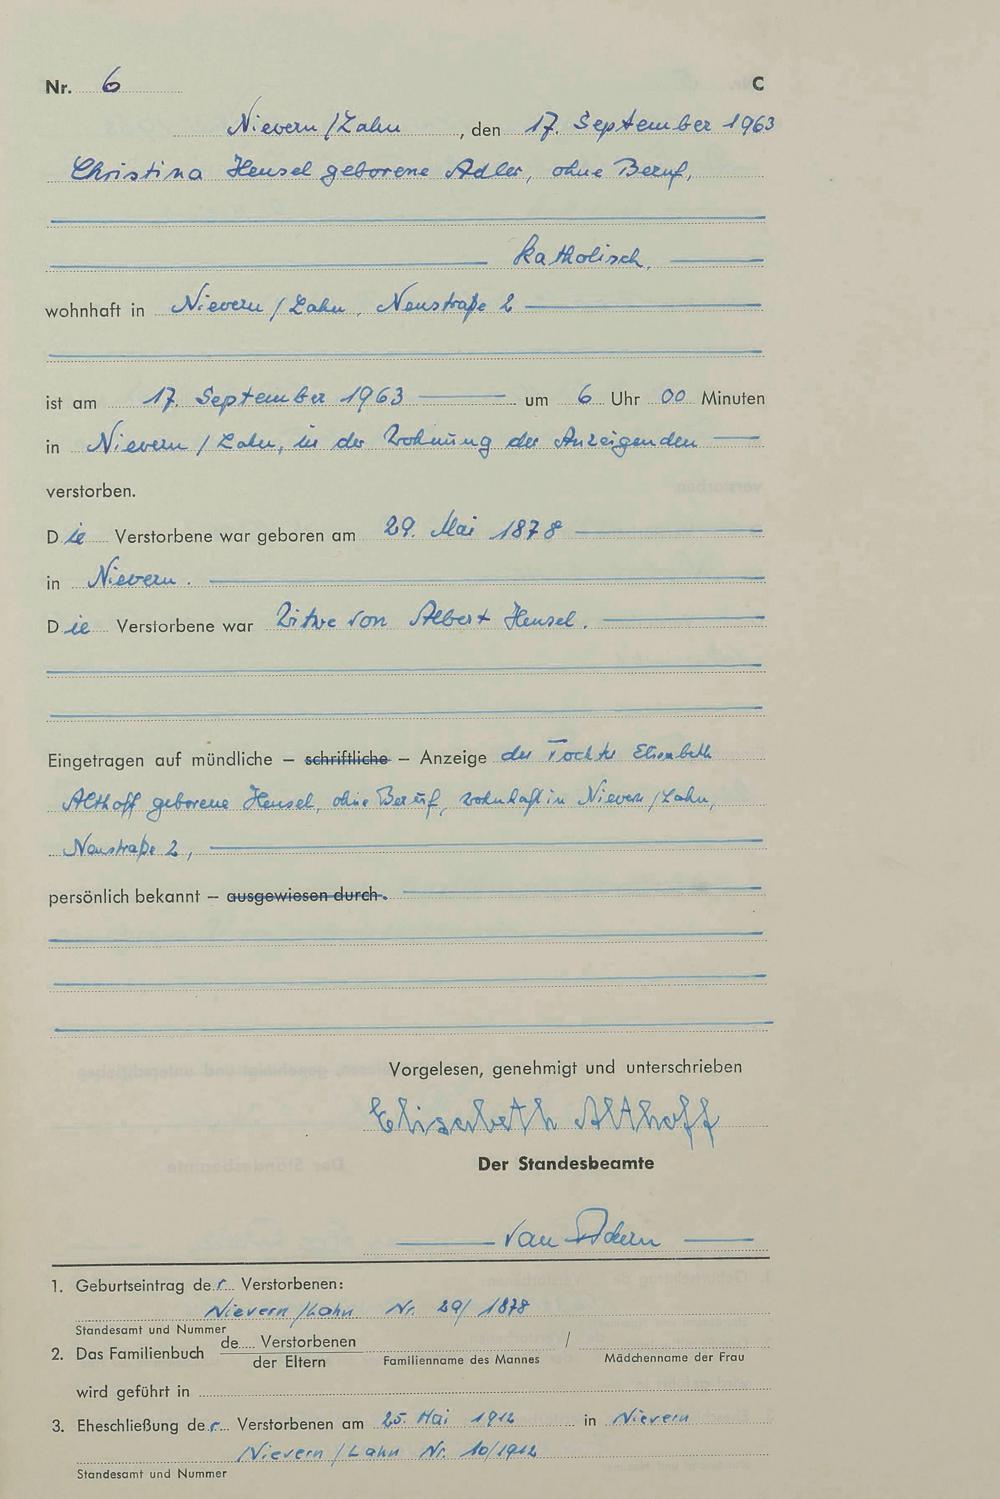 Nr. 6 C
Nievern/Lahn, den 17. September 1963
Christina Hensel geborene Adler, ohne Beruf,
katholisch,
wohnhaft in Nievern/Lahn, Neustraße 2
ist am 17. September 1963 um 6 Uhr 00 Minuten
in Nievern/Lahn, in der Wohnung der Anzeigenden
verstorben.
Die Verstorbene war geboren am 29. Mai 1878
in Nievern.
Die Verstorbene war Witwe von Albert Hensel.
Eingetragen auf mündliche – schriftliche – Anzeige der Tochter Elisabeth
Althoff geborene Hensel, ohne Beruf, wohnhaft in Nievern/Lahn,
Neustraße 2,
persönlich bekannt – ausgewiesen durch.
Vorgelesen, genehmigt und unterschrieben
Elisabeth Althoff
Der Standesbeamte
van
1. Geburtseintrag der Verstorbenen:
Nievern/Lahn Nr. 29/1878
Standesamt und Nummer
2. Das Familienbuch de Verstorbenen /
der Eltern Familienname des Mannes Mädchenname der Frau
wird geführt in
3. Eheschließung der Verstorbenen am 25. Mai 1912 in Nievern
Nievern/Lahn Nr. 10/1912
Standesamt und Nummer